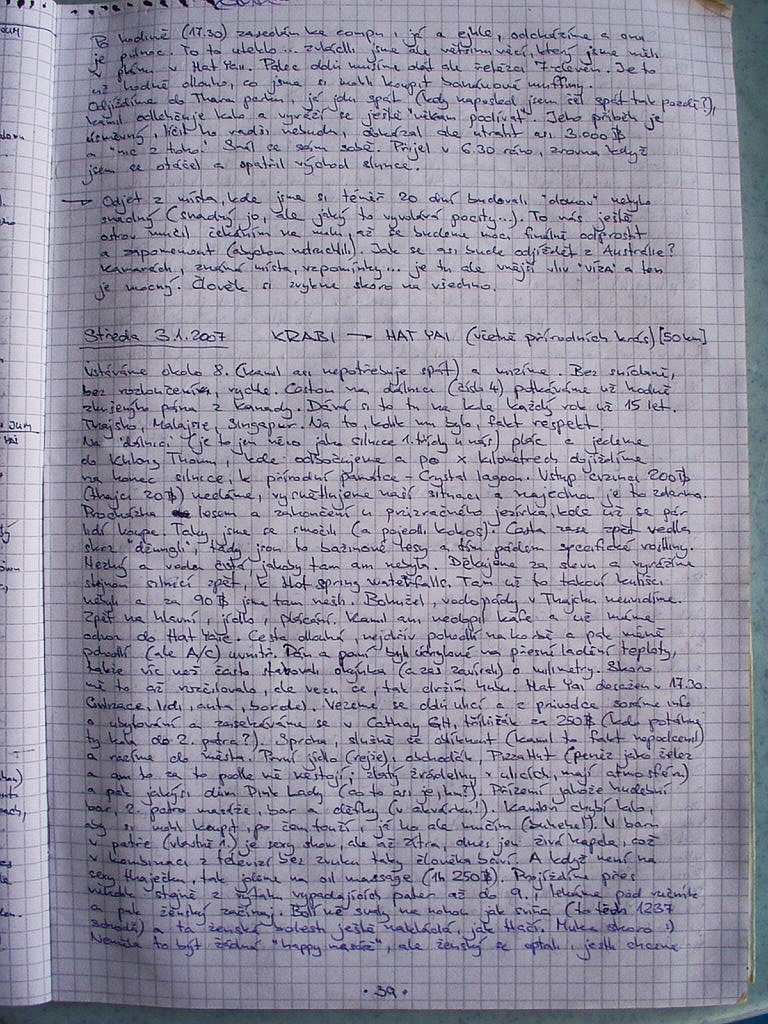 V hodině (17.30) zasedám ke compu, já a ejhle, odcházíme a ona
je půlnoc. To to uteklo... zvládli jsme ale většinu věcí, který jsme měli
v plánu v Hat Yai. Palec dolů musíme dát ale řetězci 7-eleven. Je to
už hodně dlouho, co jsme si mohli koupit banánové muffiny.
Odjíždíme do Thara parku, já jdu spát (kdy naposled jsem šel spát tak pozdě?),
kamil odlehčuje kolo a vyráží se ještě "někam podívat". Jeho příběh je
úsměvný, líčit ho radši nebudu, dokázal ale utratit asi 3.000 ฿
a "nic z toho". Smál se sám sobě. Přijel v 6.30 ráno, zrovna když
jsem se otáčel a spatřil východ slunce.
→ Odjet z místa, kde jsme si téměř 20 dní budovali "domov" nebylo
snadný (snadný jo, ale jaký to vyvolává pocity...). To nás ještě
ostrov mučil čekáním na muku, až se budeme moci finálně odprostit
a zapomenout (abychom netruchlili). Jak se asi bude odjíždět z Austrálie?
kamarádi, známá místa, vzpomínky... je tu ale vnější vliv "víza" a ten
je mocný. Člověk si zvykne skoro na všechno.
Středa 3.1.2007 KRABI → HAT YAI (včetně přírodních krás) [50km]
Vstáváme okolo 8. (kamil asi nepotřebuje spát) a mizíme. Bez snídaně,
bez rozloučení, rychle. Cestou na dálnici (číslo 4) potkáváme už hodně
zkušeného pána z Kanady. Dává si to tu na kole každý rok už 15 let.
Thajsko, Malajsie, Singapur. Na to, kolik mu bylo, fakt respekt.
Na "dálnici" (je to jen něco jako silnice 1. třídy u nás) plác a jedeme
do Khlong Thoum, kde odbočujeme a po x kilometrech dojíždíme
na konec silnice, k přírodní památce - Crystal lagoon. Vstup cizinci 200 ฿
(thajci 20 ฿) nedáme, vysvětlujeme naší situaci a najednou je to zdarma.
Procházka lesem a zakončení u průzračného jezírka, kde už se pár
lidí koupe. Taky jsme se smočili (a pojedli kokos). Cesta zase zpět vedla
skrz "džungli", tady jsou to bažinové lesy a tím pádem specifické rostliny.
Hezký a voda čistá jakoby tam ani nebyla. Děkujeme za slevu a vyrážíme
stejnou silnicí zpět, k Hot spring waterfalls. Tam už to takoví kutišci
nebyli a za 90 ฿ jsme tam nešli. Bohužel, vodopády v Thajsku neuvidíme.
Zpět na hlavní, jídlo, plácání. Kamil ani nedopil kafe a už máme
odvoz do Hat Yaie. Cesta dlouhá, nejdřív pohodlí na korbě a pak méně
pohodlí (ale A/C) uvnitř. Pán a paní byli úchylové na přesné ladění teploty,
takže víc než často stahovali okýnka (a zas zavírali) o milimetry. Skoro
mě to až rozčilovalo, ale vezu se, tak držím hubu. Hat Yai dosažen v 17.30.
Civilizace, lidi, auta, bordel. Vezeme se dolů ulicí a z průvodce saháme info
o ubytování a zasekáváme se v Cathay GH, třílůžák za 250 ฿ (kdo potáhne
ty kola do 2. patra?). Sprcha, slušně se obléknout (kamil to fakt nepodcenil)
a razíme do města. První jídlo (rejže), obchoďák, PizzaHut (peněz jako želez
a ani to za to podle mě nestojí; zlatý žrádelny v ulicích, mají atmosféru)
a pak jakýsi dům Pink Lady (co to asi je, hm?). Přízemí jakože hudební
bar, 2. patro masáže, bar a děvky (v akvárku!). Kamilovi chybí kolo,
aby si mohl koupit, po čem touží, já ho ale mučím (buhehe!). V baru
v patře (vlastně 1.) je sexy show, ale až zítra, dnes jen živá kapela, což
v kombinaci z televizí bez zvuku taky člověka baví. A když není na
sexy thaječku, tak jdeme na oil massage (1h 250 ฿). Projíždíme přes
několik stejně z výtahu vypadajících pater až do 9., lekáme pod ručník
a pak ženský začínaj. Bolí mě svaly na nohou jak sviňa (to těch 1237
schodů) a ta ženská bolesti ještě nakládá, jak tlačí. Muka skoro :)
Neměla to být žádná "happy masáž", ale ženský se optali, jestli chceme
• 39 •